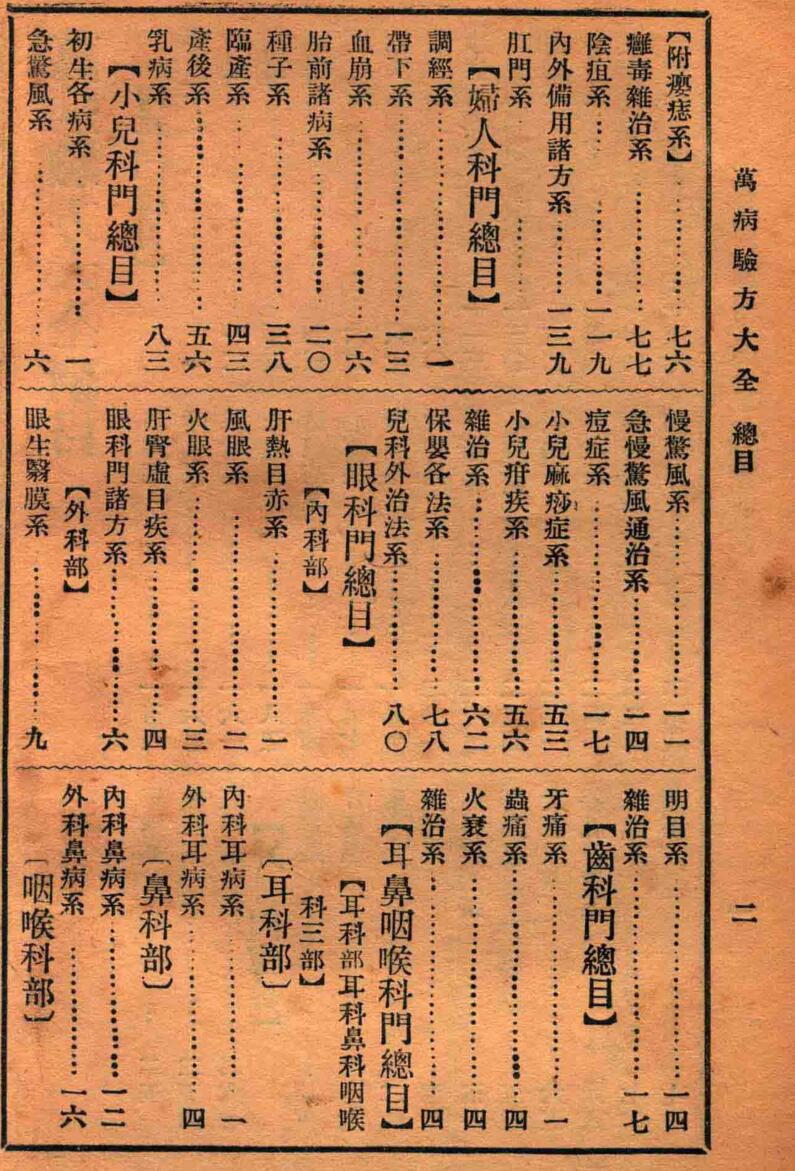 萬病驗方大全 總目
二
【附癭痣系】……七六
癰毒雜治系……七七
陰疽系……一一九
內外備用諸方系……一三九
肛門系……
【婦人科門總目】
調經系……一
帶下系……一三
血崩系……一六
胎前諸病系……二〇
種子系……三八
臨產系……四三
產後系……五六
乳病系……八三
【小兒科門總目】
初生各病系……一
急驚風系……六
慢驚風系……一一
急慢驚風通治系……一四
痘症系……一七
小兒麻痧症系……五三
小兒疳疾系……五六
雜治系……六二
保嬰各法系……七八
兒科外治法系……八〇
【眼科門總目】
【內科部】
肝熱目赤系……一
風眼系……二
火眼系……三
肝腎虛目疾系……四
眼科門諸方系……六
【外科部】
眼生翳膜系……九
明目系……一四
雜治系……一七
【齒科門總目】
牙痛系……一
蟲痛系……四
火衰系……四
雜治系……四
【耳鼻咽喉科門總目】
【耳科部耳科鼻科咽喉
科三部】
〔耳科部〕
內科耳病系……一
外科耳病系……四
〔鼻科部〕
內科鼻病系……一二
外科鼻病系……一六
〔咽喉科部〕